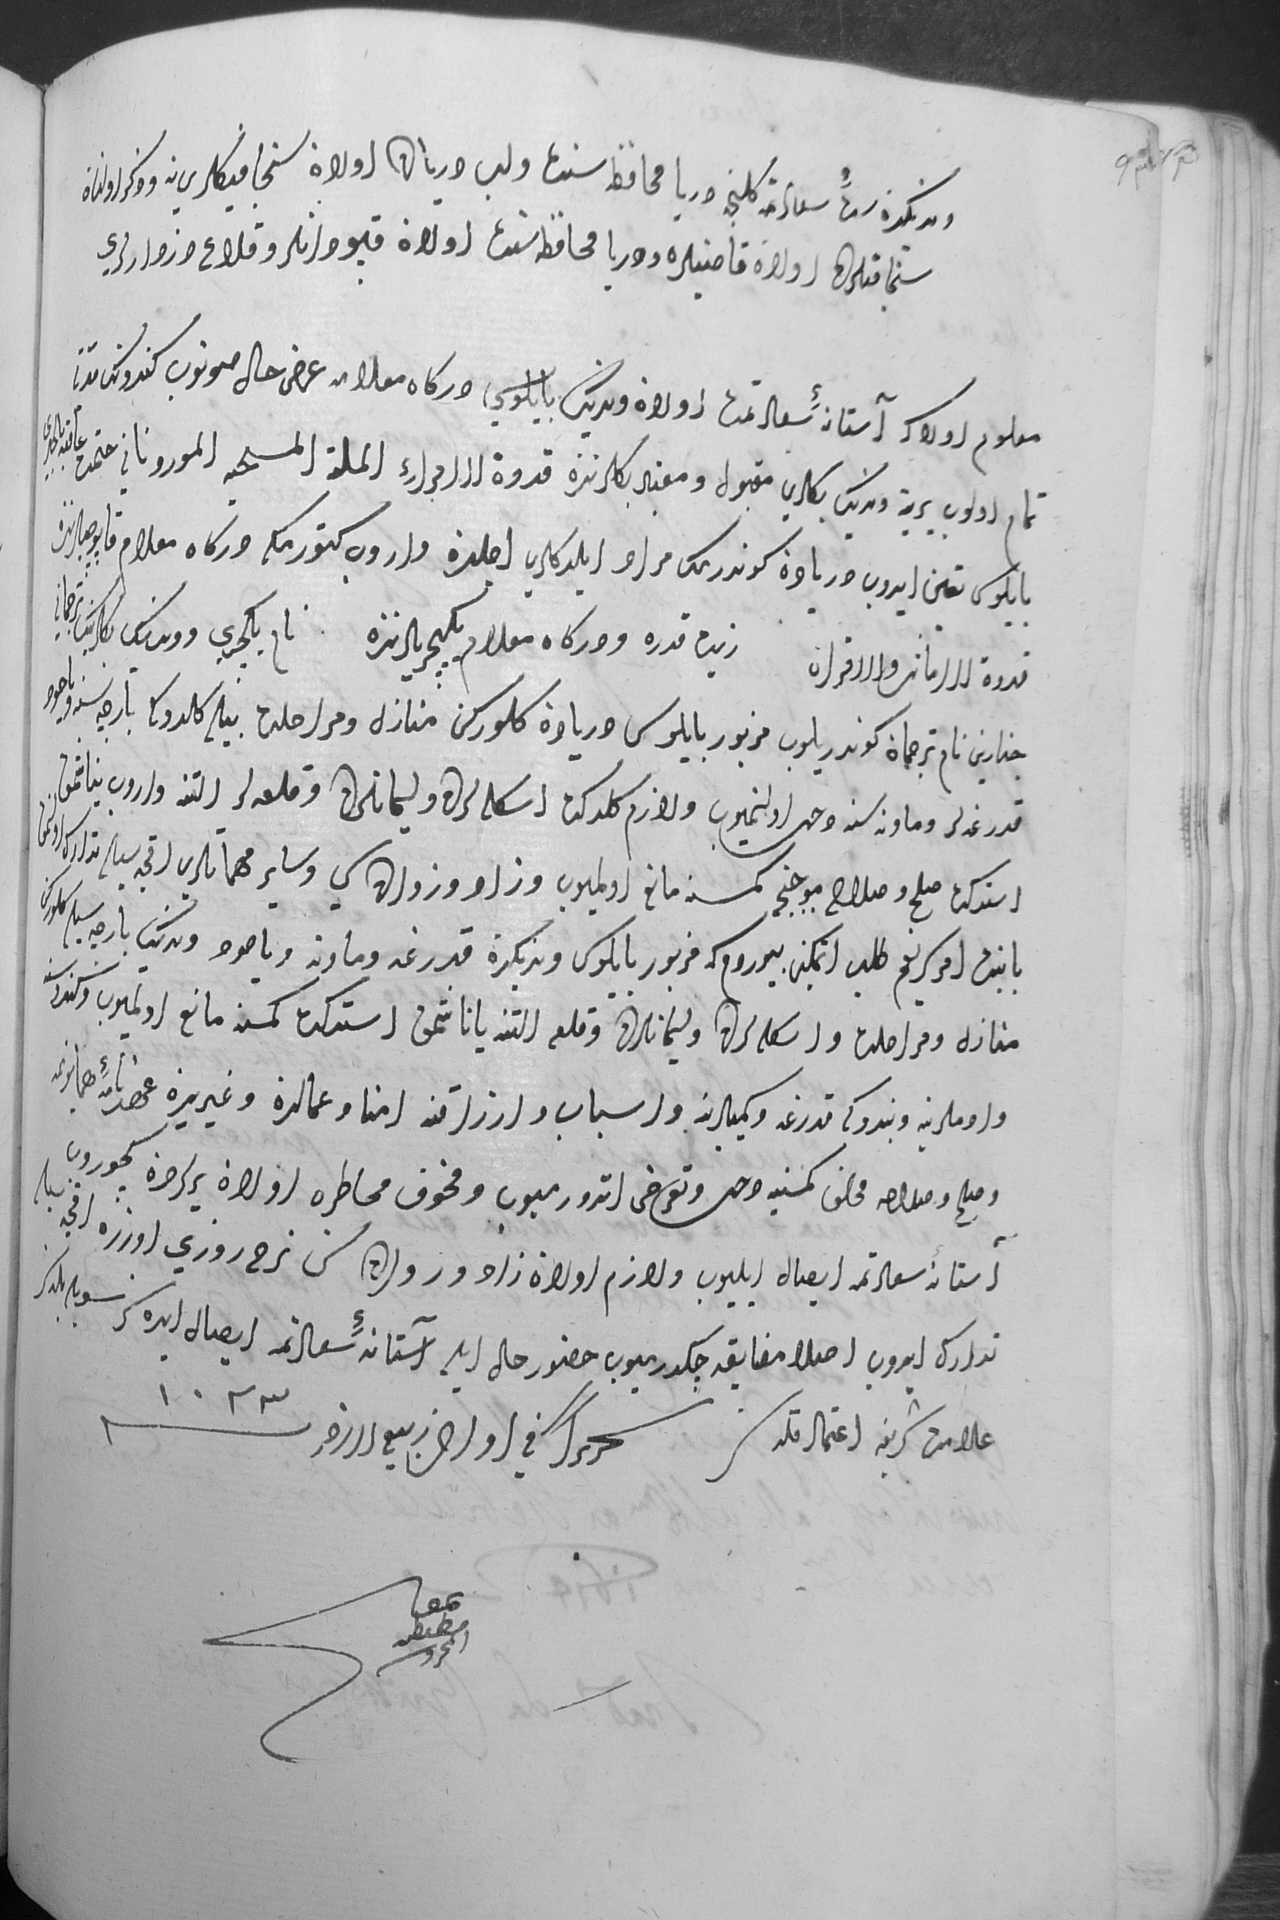 وندیکدن آستانهٔ سعادته کلنجه دریا محافظه سنده ولب دریاده اولان سنجاق بکلرینه و ذکر اولنان
سنجاقلرده اولان قاضیلره و دریا محافظه سنده اولان قپودانلر و قلاع دزدارلری
معلوم اولا که آستانهٔ سعادتمده اولان وندیک بایلوسی درکاه معلامه عرضحال صونوب کندونک مدتی
تمام اولوب یرینه وندیک بکلری مقبول و معتبر بکلرندن قدوة الامراء الملة المسیحیه ختمت عاقبته بالخیری
بایلوس تعیین ایدوب دریادن کوندرمک مراد ایلدکلری اجلدن واروب کتورمکه درکاه معلام قاپوجیلرندن
قدوة الاماثل والاقران زید قدره و درکاه معلام یکیچریلرندن نام یکیچری و وندیک بکلرینک ترجمانی
نام ترجمان کوندریلوب مزبور بایلوس دریادن کلورکن منازل و مراحلده بیله کلدوکی بارچه سنه و یاخود
قدرغه لر و ماونه سنه دخل اولنمیوب و لازم کلدکده اسکله لرده و لیمانلرده و قلعه لر التنه واروب یناشمق
استدکده صلح و صلاح موجبنجه کمسنه مانع اولمیوب و زاد و زواده سی و سایر مهماتلری اقچه سیله تدارک اولنمق
بابنده امر شریفم طلب اتمکین بیوردم که مزبور بایلوس وندیکدن قدرغه و ماونه و یاخود وندیک بارچه سیله کلورکن
منازل و مراحلده و اسکله لرده و لیمانلرده و قلعه التنه یاناشمق استدکده کمسنه مانع اولمیوب و کندوسنه
و ادملرینه و بندوکی قدرغه و کمیلرینه و اسباب و ارزاقنه امنا و عمالدن و غیریدن عهدنامهٔ همایونمه
و صلح و صلاحه مخالف کمسنیه دخل و تعرض اتدورمیوب و مخوف و مخاطره اولان یرلردن کچوروب
آستانهٔ سعادتمه ایصال ایلیوب و لازم اولان زاد و زواده سن نرخ روزی اوزره اقچه سیله
تدارک ایدوب اصلا مضایقه چکدرمیوب حضور حال ایله آستانهٔ سعادتمه ایصال ایده سز شویله بلسز
علامت شریفه اعتماد قلاسز تحریرا فی اواخر ربیع الاخر ١٠٢٣